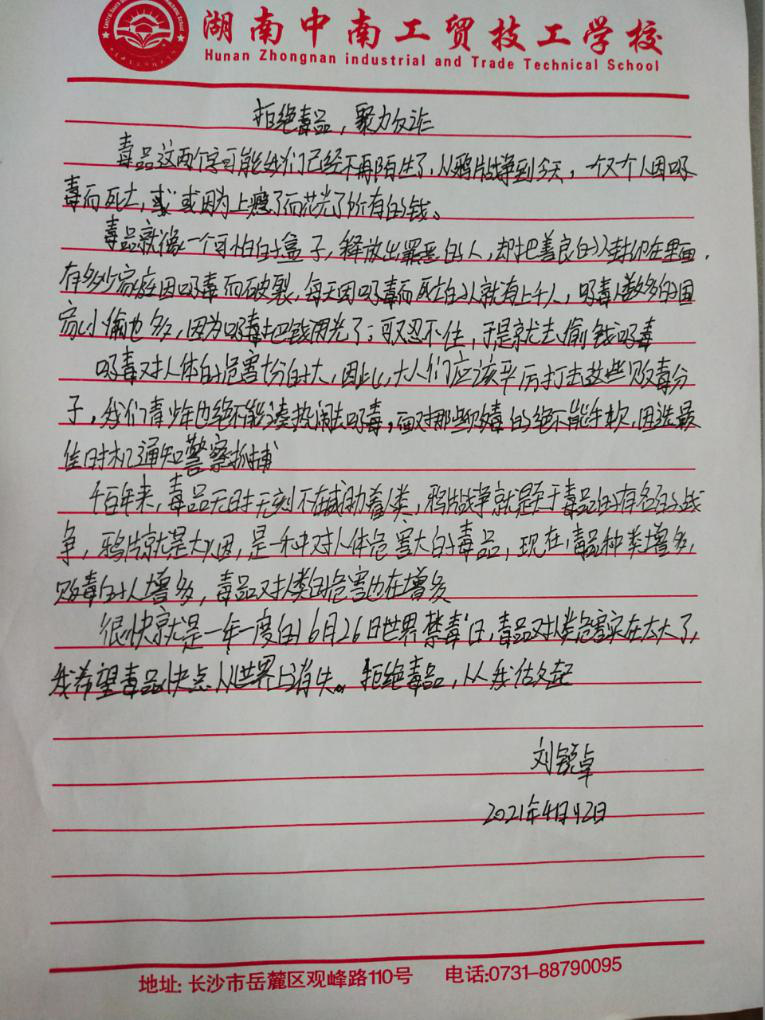 湖南中南工贸技工学校
Hunan Zhongnan industrial and Trade Technical School
拒绝毒品，聚力反诈
毒品这两个字可能我们已经不再陌生了，从鸦片战争到今天，一个又一个人因吸
毒而死亡，或因为上瘾了而花光了所有的钱。
毒品就像一个可怕的盒子，释放出罪恶的人，却把善良的人封印在里面，
有多少家庭因吸毒而破裂，每天因吸毒而死亡的人就有上千人，吸毒人数多的国
家小偷也多，因为吸毒把钱用光了；可又忍不住，于是就去偷钱吸毒
吸毒对人体的危害十分的大，因此，大人们应该严厉打击这些贩毒分
子，我们青少年也绝不能凑热闹去吸毒，面对那些贩毒的绝不能手软，因选最
佳时机通知警察抓捕
千百年来，毒品无时无刻不在威胁着人类，鸦片战争就是关于毒品的有名的战
争，鸦片就是大烟，是一种对人体危害大的毒品，现在，毒品种类增多，
贩毒的人增多，毒品对人类的危害也在增多
很快就是一年一度的6月26日世界禁毒日，毒品对人类危害实在太大了，
我希望毒品快点从世界上消失。拒绝毒品，从我做起
刘锐卓
2021年4月12日
地址: 长沙市岳麓区观峰路110号 电话:0731-88790095